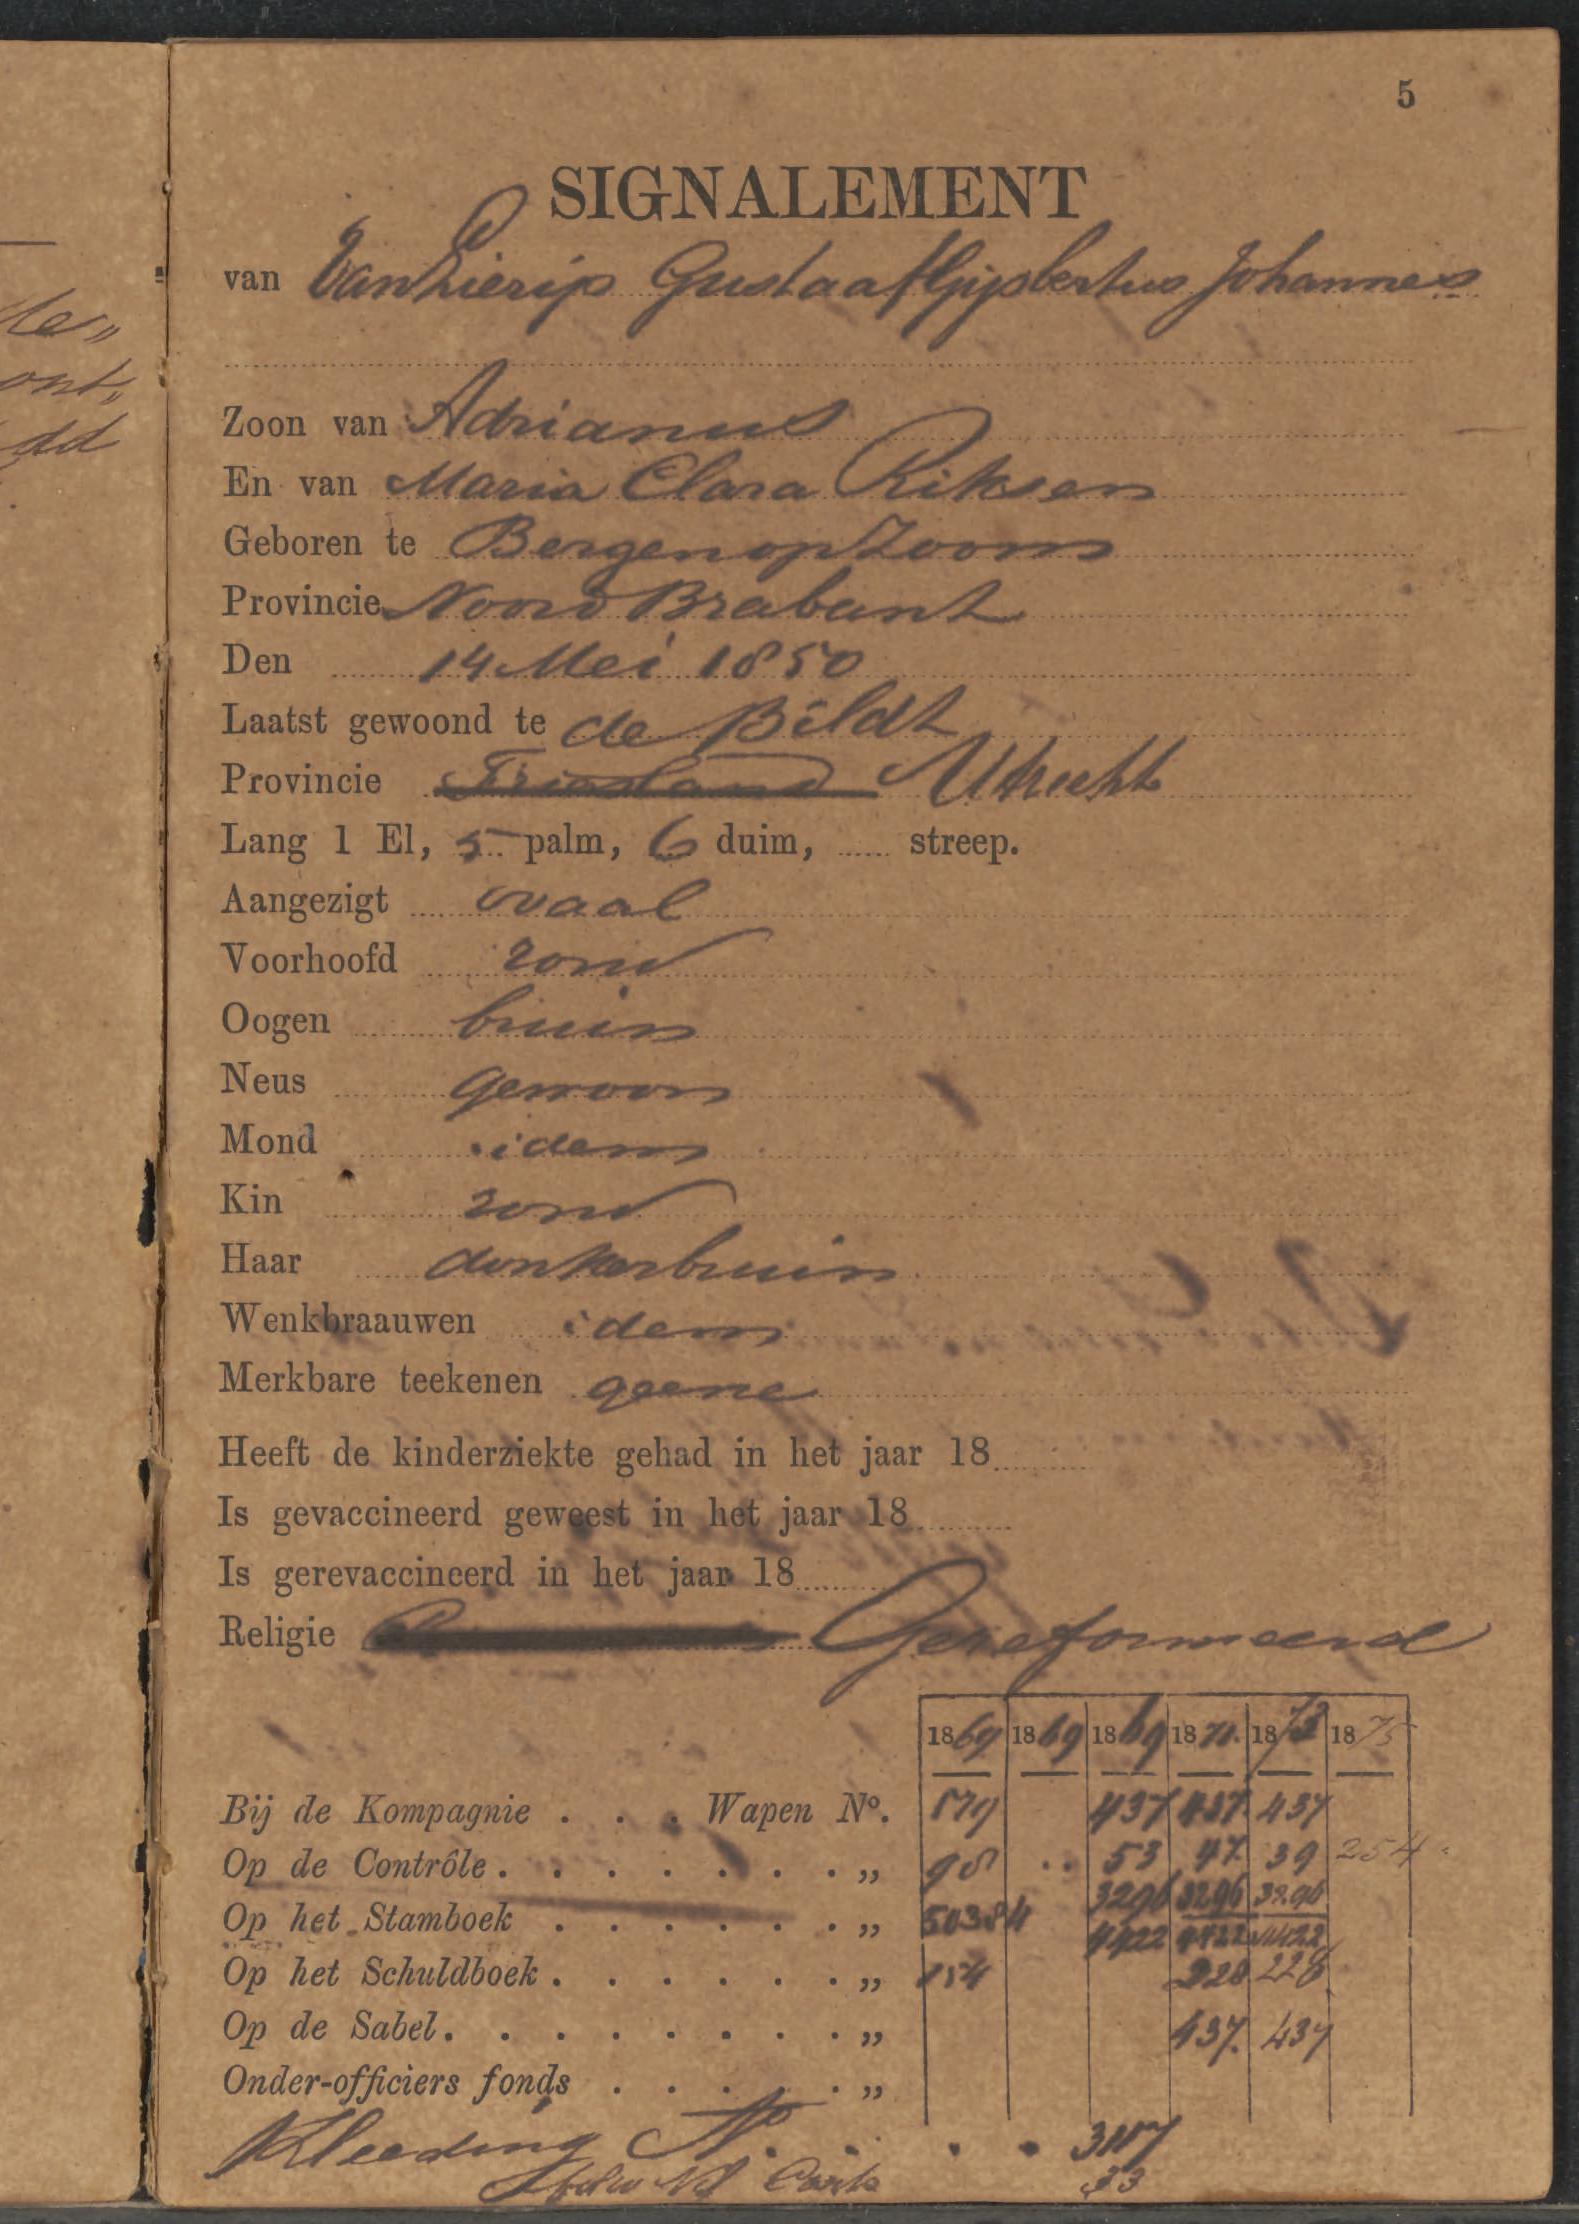 5
SIGNALEMENT
van van Lierip Gustaaf Gijsbertus Johannes
Zoon van Adrianus
En van Maria Clara Riksen
Geboren te Bergen op Zoom
Provincie Noord Brabant
Den 14 Mei 1850
Laatst gewoond te de Bildt
Provincie Friesland Utrecht
Lang 1 El, 5 palm, 6 duim, ...... streep.
Aangezigt ovaal
Voorhoofd rond
Oogen bruin
Neus gewoon
Mond idem
Kin rond
Haar donkerbruin
Wenkbraauwen idem
Merkbare teekenen geene
Heeft de kinderziekte gehad in het jaar 18
Is gevaccineerd geweest in het jaar 18
Is gerevaccineerd in het jaar 18
Religie Gereformeerd
1869 1869 1869 1871. 1873 1875
Bij de Kompagnie . . . Wapen No. 179 437 437. 437
Op de Contrôle . . . . . . . „ 98 53 47. 39 254
3296 3296 3296
Op het Stamboek . . . . . . „ 50384 4422 4422 4422
Op het Schuldboek . . . . . . „ 154 228 228
Op de Sabel . . . . . . . . „ 437. 437
Onder-officiers fonds . . . . . „
Kleeding No. . . . 3117
33